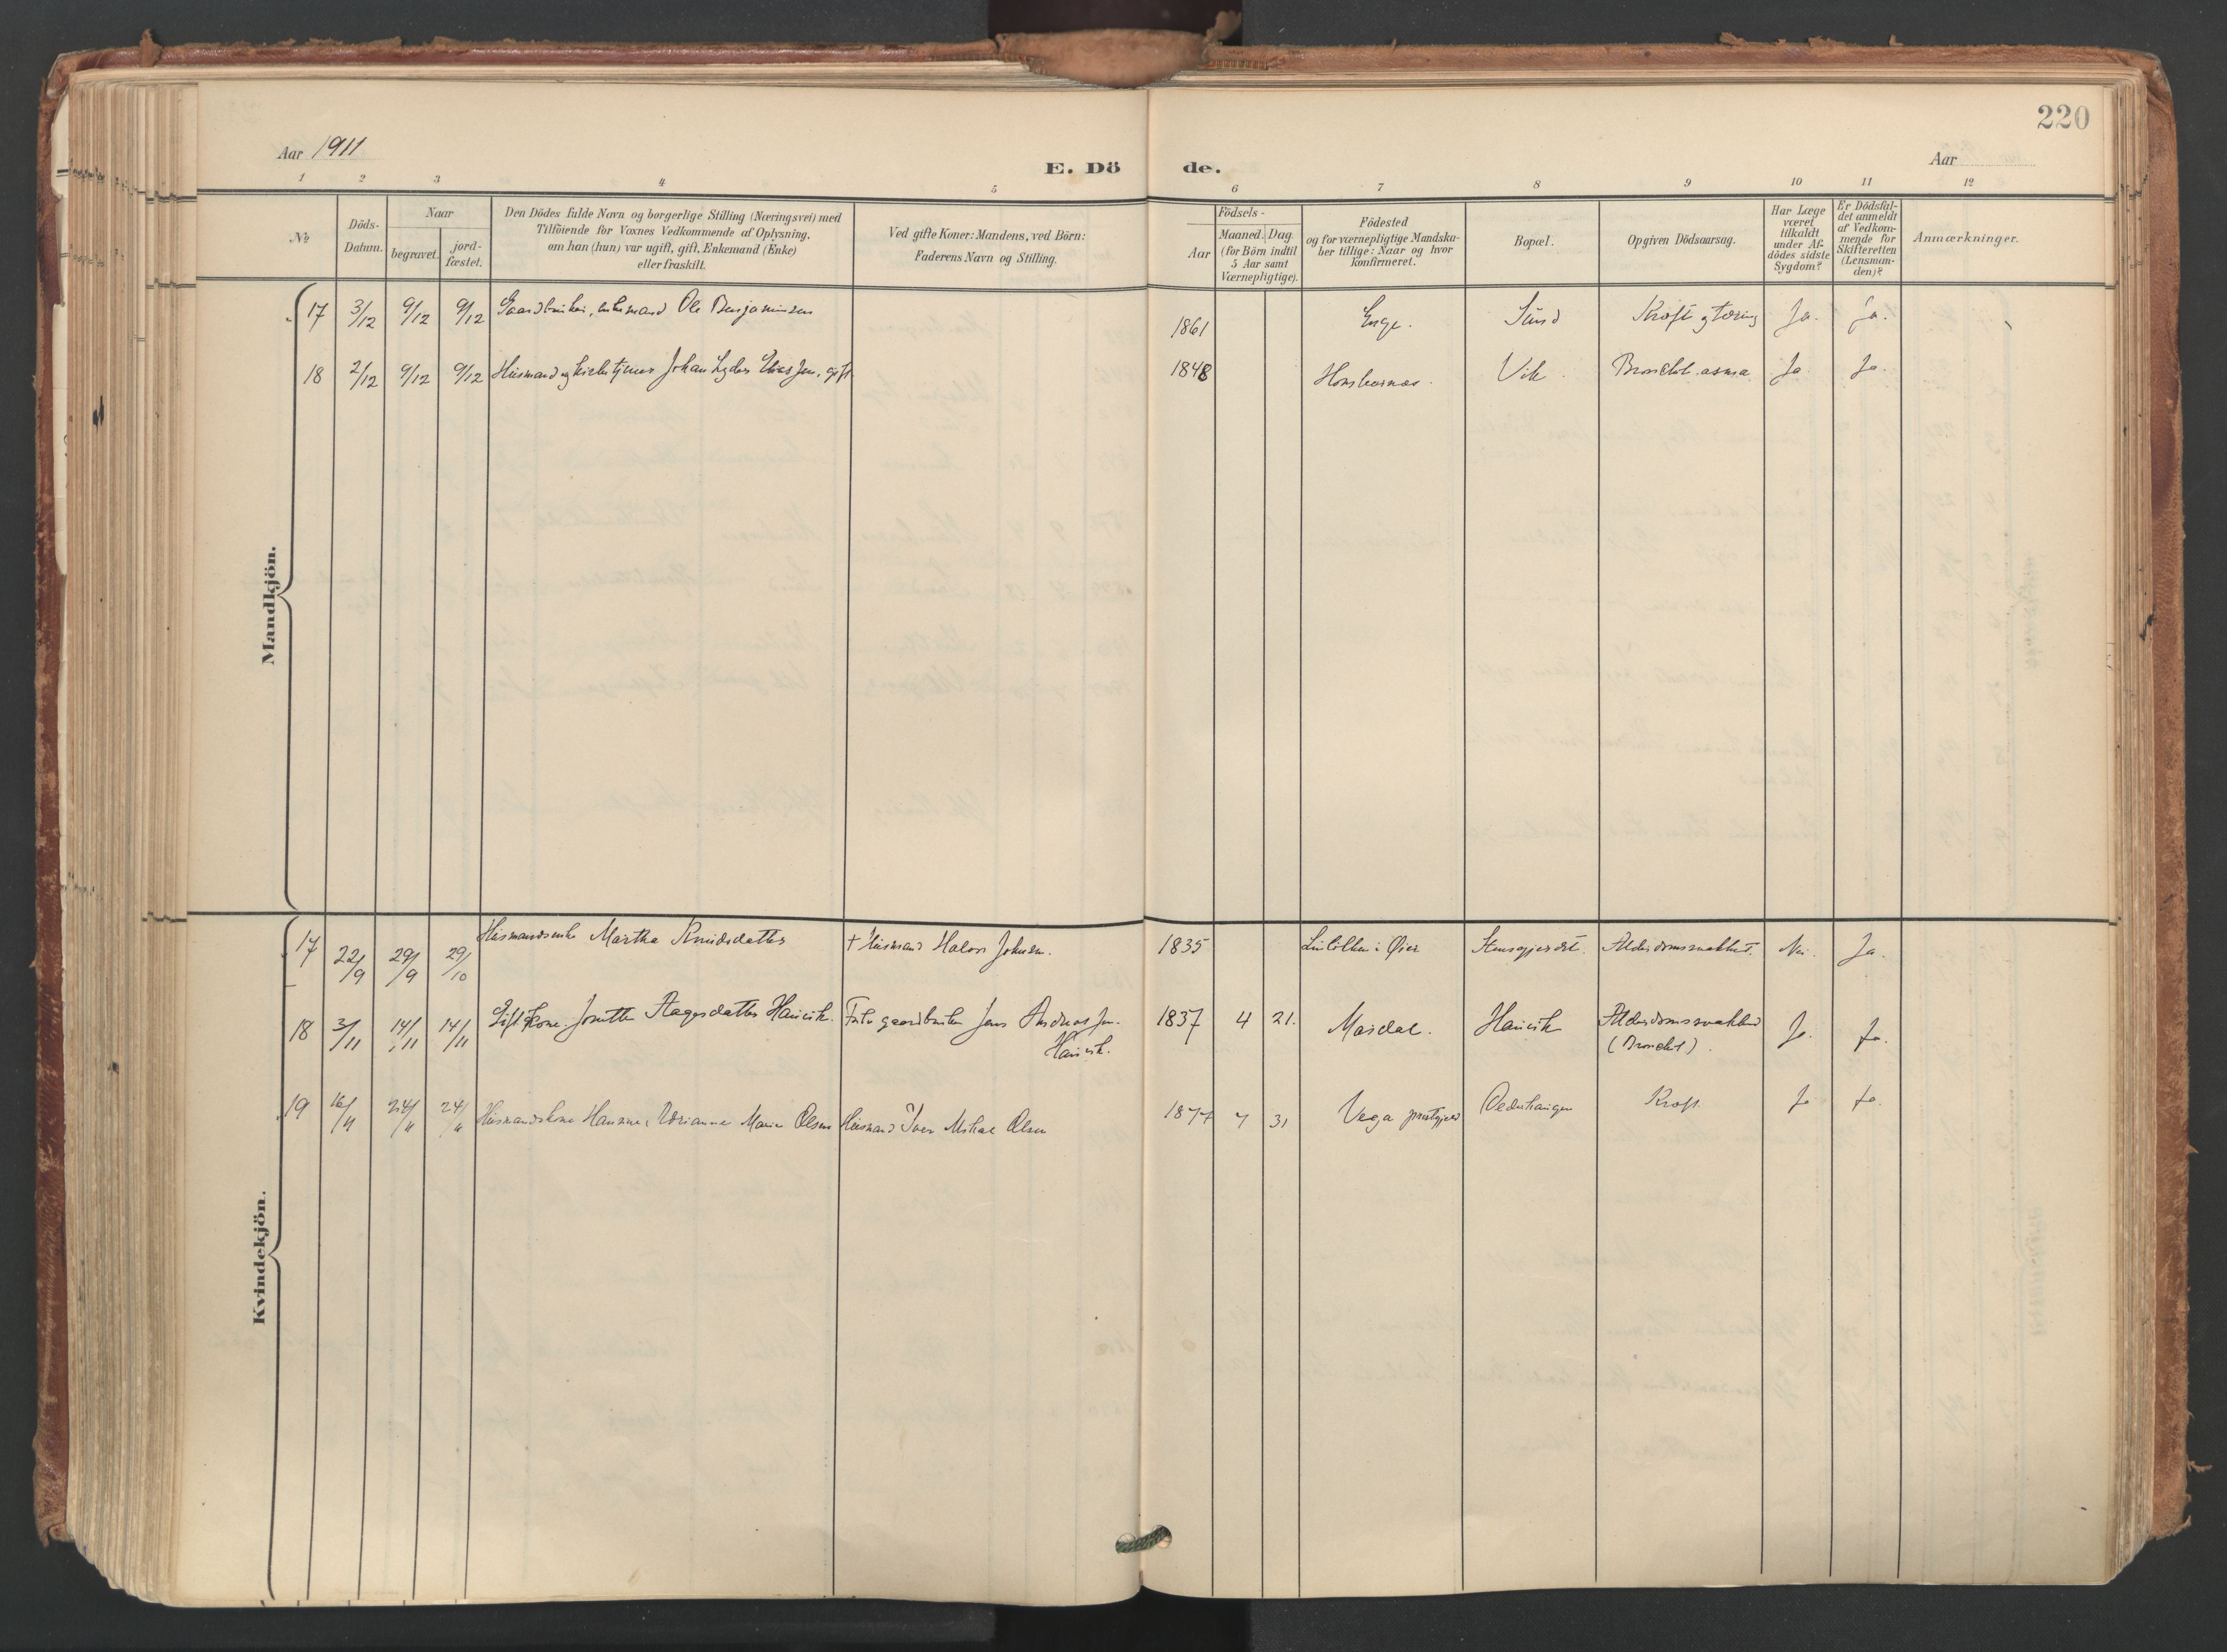 220
Aar 1911
E. Dö
de.
Aar
1 2 3 4 5 6 7 8 9 10 11 12
№
Döds-
Datum.
Naar
begravet.
jord-
fæstet.
Den Dödes fulde Navn og borgerlige Stilling (Næringsvei) med
Tilföiende for Voxnes Vedkommende af Oplysning,
om han (hun) var ugift, gift, Enkemand (Enke)
eller fraskilt.
Ved gifte Koner: Mandens, ved Börn:
Faderens Navn og Stilling.
Födsels-
Aar
Maaned. Dag.
(for Börn indtil
5 Aar samt
Værnepligtige).
Födested
og for værnepligtige Mandska-
ber tillige: Naar og hvor
konfirmeret.
Bopæl.
Opgiven Dödsaarsag.
Har Læge
været
tilkaldt
under Af-
dödes sidste
Sygdom?
Er Dödsfal-
det anmeldt
af Vedkom-
mende for
Skifteretten
(Lensman-
den)?
Anmærkninger.
Mandkjön.
17 3/12 9/12 9/12 Gaardbruker, enkemand Ole Benjaminsen 1861 Enge. Sund Kræft og tæring Ja. Ja.
18 2/12 9/12 9/12 Husmand og kirketjener Johan Lyder Eliassen, gift 1848 Vik Bronchit. asma Ja. Ja.
Kvindekjön.
17 22/9 29/9 29/10 Husmandsenke Martha Knudsdatter † Husmand Halvor Johnsen. 1835 i Øier Stensgjerdet. Alderdomssvakhet. Nei. Ja.
18 3/11 14/11 14/11 Gift Kone Aagesdatter Hauvik. gaardbruker Jens Andreas Jen.
Hauvik.
1837 4 21. Masdal. Hauvik Alderdomssvakhed
(Bronchit). Ja. Ja.
19 16/11 24/11 24/11 Husmandskone Hansine Adrianna Marie Olsen Husmand Iver Mikal Olsen 1877 7 31 Vega prestegjeld Kræft Ja Ja.